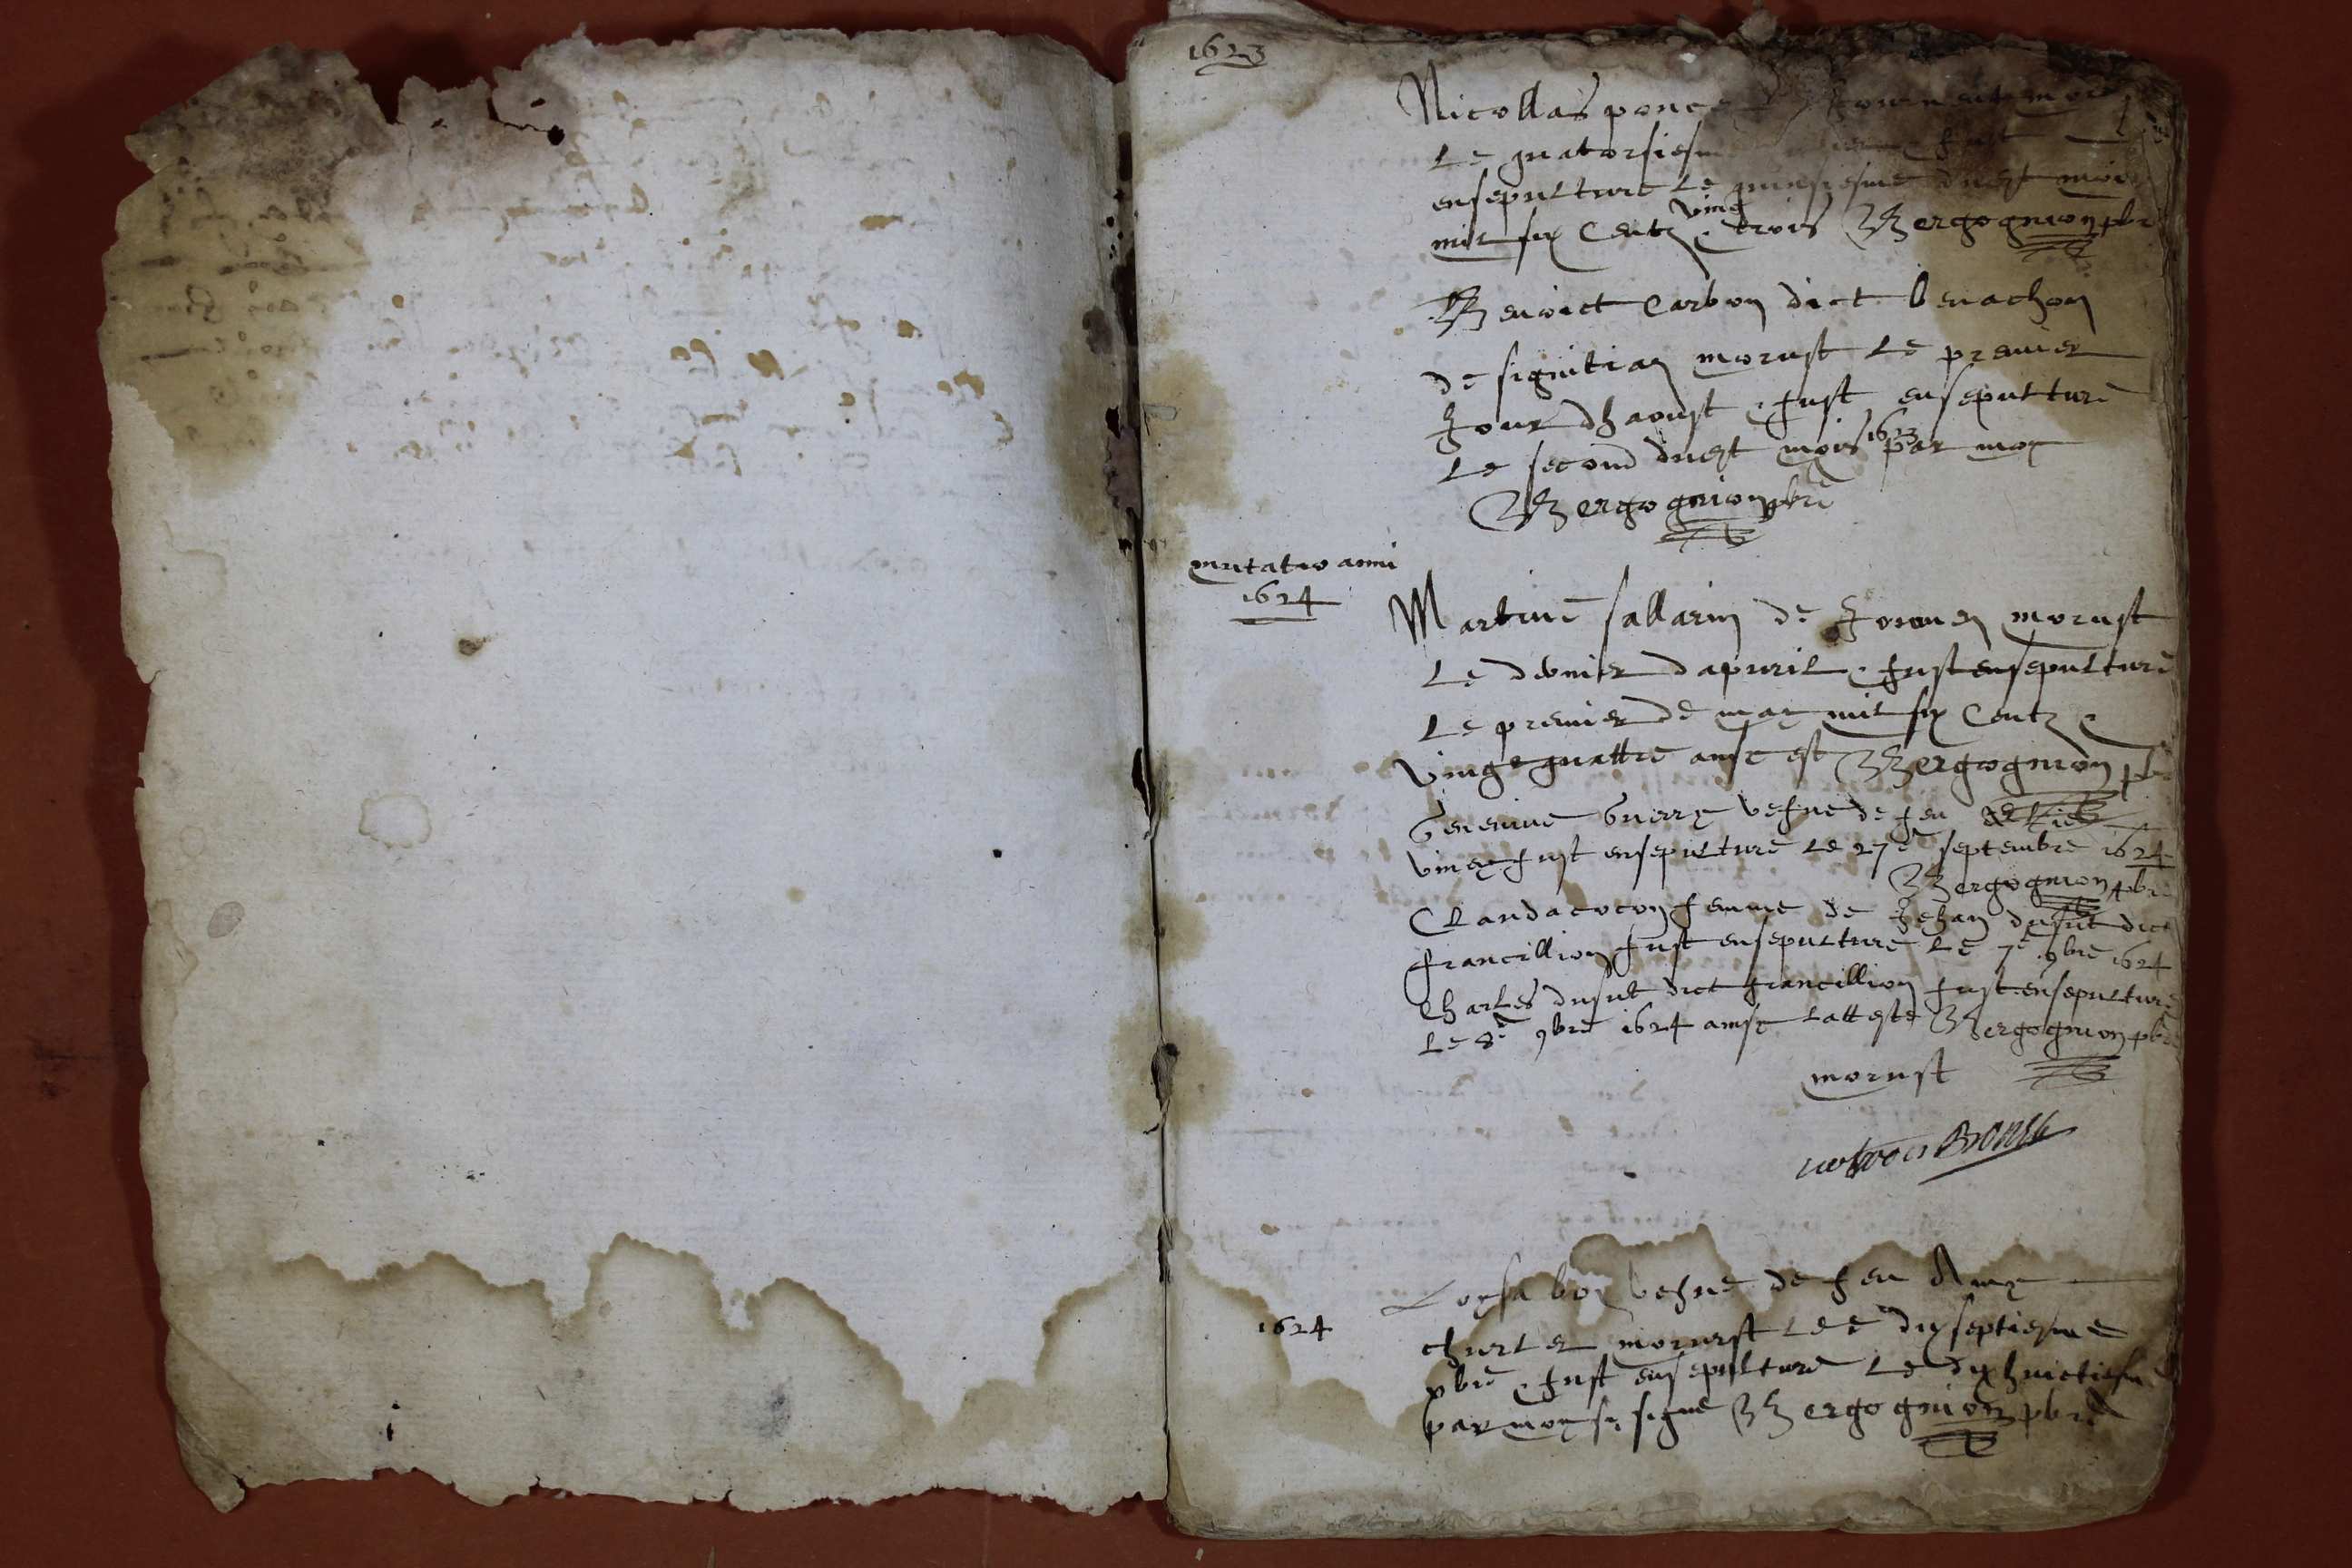 1623
Nicollas ponce
Le quatorsiesme fust
ensepulture Le quinsiesme duest mois
mil six Centz & ving trois Bergognion pbre
Benoict Carbon dict benachon
de signitian morust Le premier
Jour dhaoust & fust ensepulture
Le second duest mois 1623 par moy
Bergognion pbre
mutatio anni
1624
Martine sallarin de morust
Le dernier dapuril & fust ensepulture
Le premier de may mil six Centz &
ving & quattre ainse est Bergognion pbre
Guerry vefue de feu
fust ensepulture Le 27e septembre 1624
Bergognion pbre
Clauda cocon femme de Jehan dusut dict
francillion fust ensepulture Le 7e 9bre 1624
Charles dusut dict francillion fust ensepulture
Le 8e 9bre 1624 ainse Latteste Bergognion pbre
morust
Loysa boy vefue de feu Amy
churlet morust Le dixseptiesme
xbre & fust ensepulture Le dixhuictiesme
1624
par moy signe Bergognion pbre